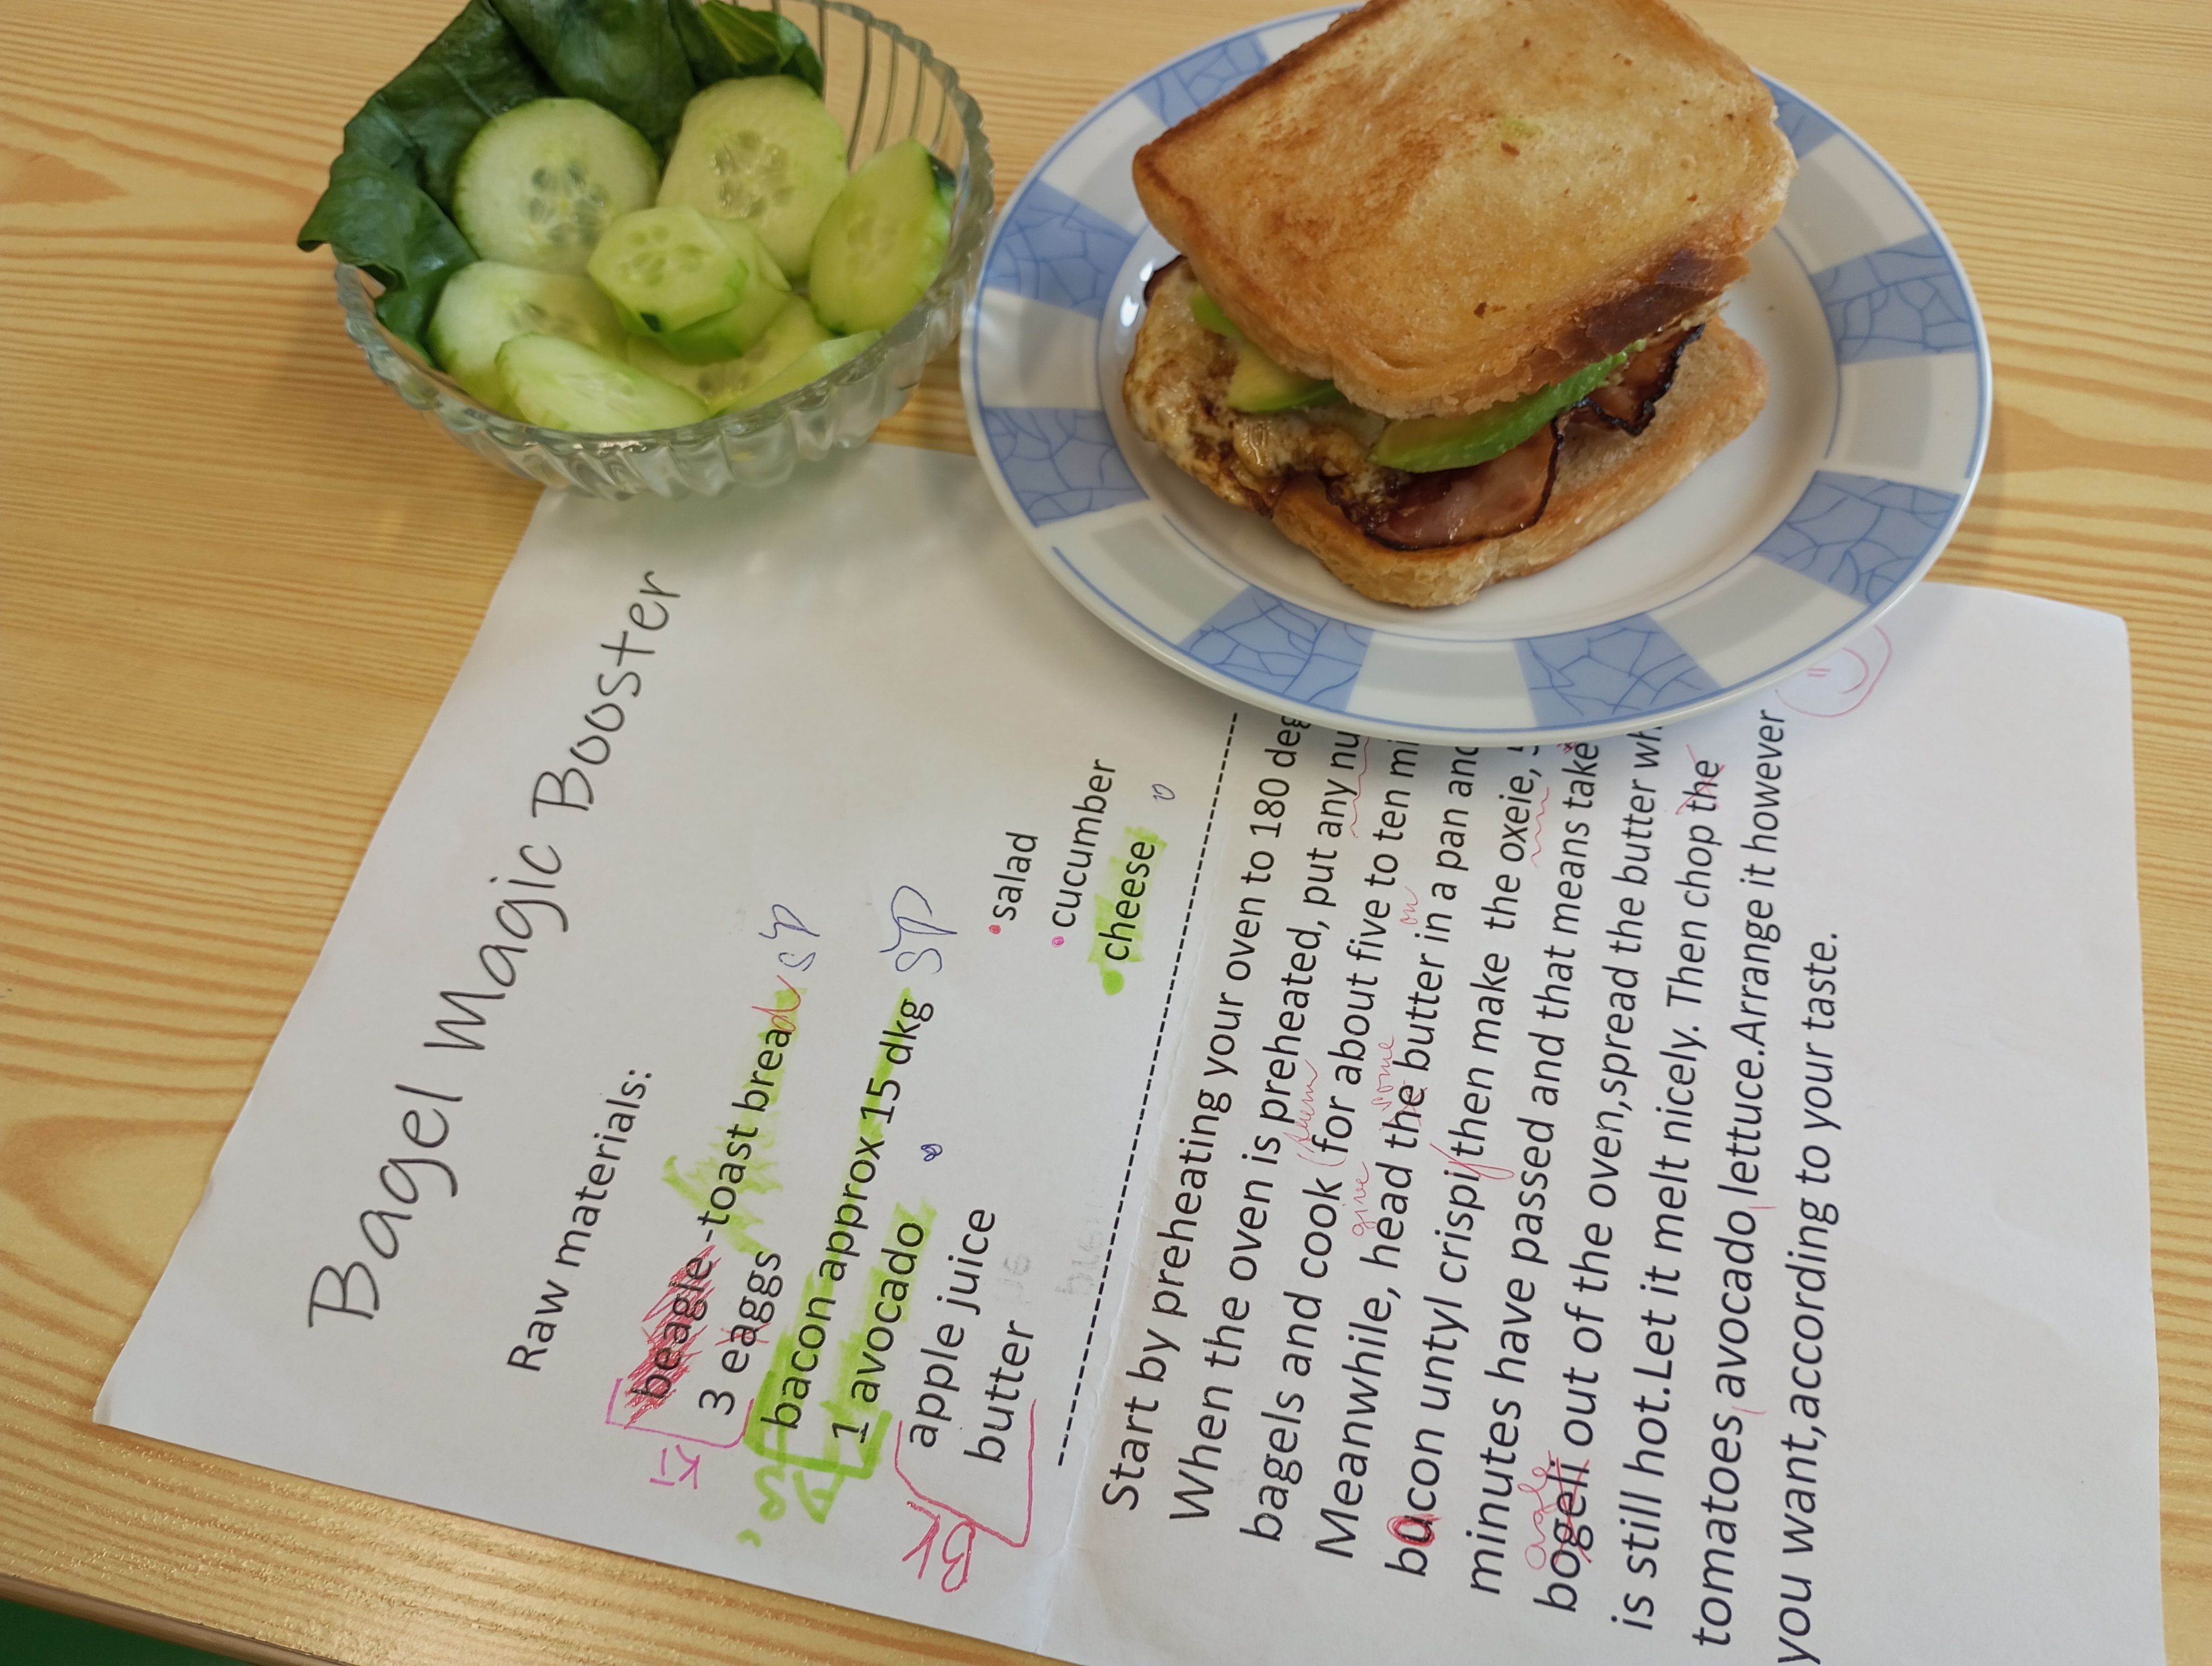 Bagel Magic Booster
Raw materials:
beagle-toast bread sp
3 eaggs
bacon approx 15 dkg sp
1 avocado
apple juice
butter
•salad
•cucumber
•cheese
KT
BK
Start by preheating your oven to 180 deg
When the oven is preheated, put any nu
bagels and cook for about five to ten mi
give some on
Meanwhile, head the butter in a pan and
bacon untyl crispi then make the oxeie,
minutes have passed and that means take
bogeli out of the oven,spread the butter wh
is still hot.Let it melt nicely. Then chop the
tomatoes avocado lettuce.Arrange it however
you want,according to your taste.